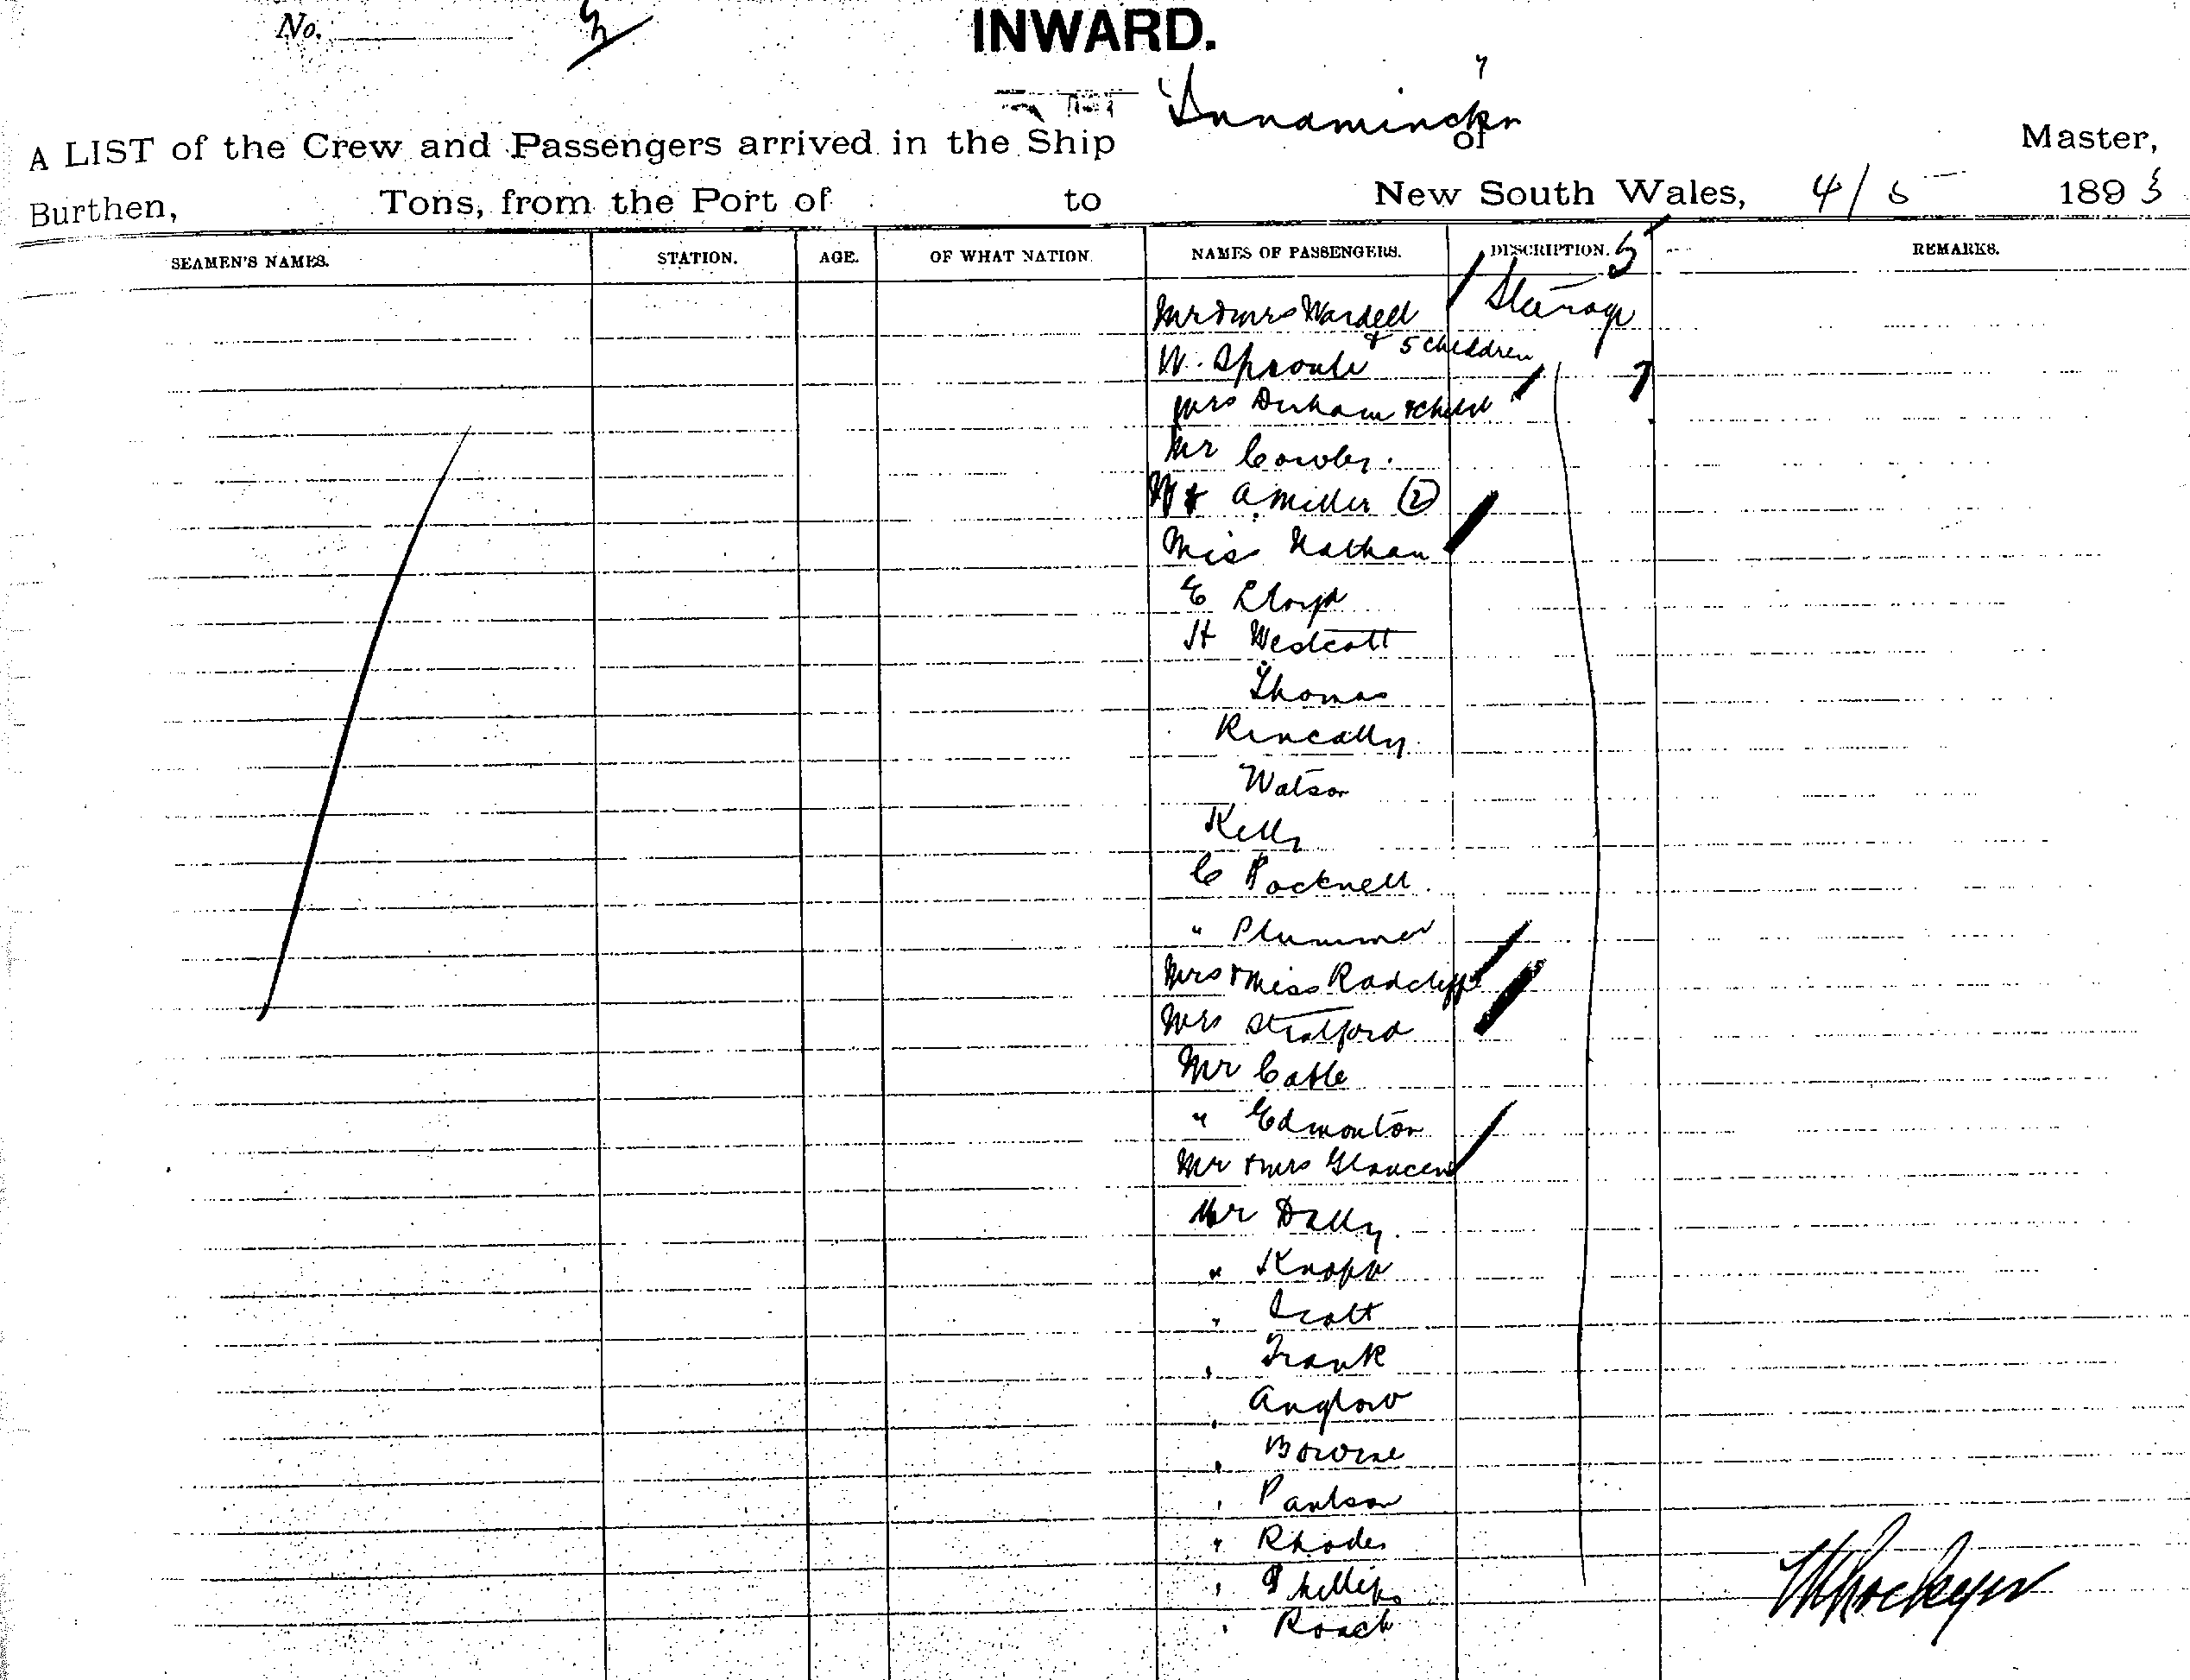 No.
INWARD.
Innamincka
A LIST of the Crew and Passengers arrived in the Ship of Master,
Burthen, Tons, from the Port of to New South Wales, 4/5 1893
SEAMEN'S NAMES. STATION. AGE. OF WHAT NATION. NAMES OF PASSENGERS. DESCRIPTION. 5 REMARKS.
Mr & Mrs Wardell Steerage
& 5 children
W. Sproule
Mrs Durham & child
Mr Cowley.
W & A. Miller (2)
Miss Nathan
E Lloyd
H Westcott
Thomas
Watson
Kelly
C Pocknell
" Plummer
Mrs & Miss Radcliffe
Mrs Stratford
Mr Cable
" Edmonton
Mr & Mrs
Mr Dally
" Knapp
" Scott
" Frank
" Anglow
" Bowne
" Paulson
" Rhodes
" Phillips
" Roach